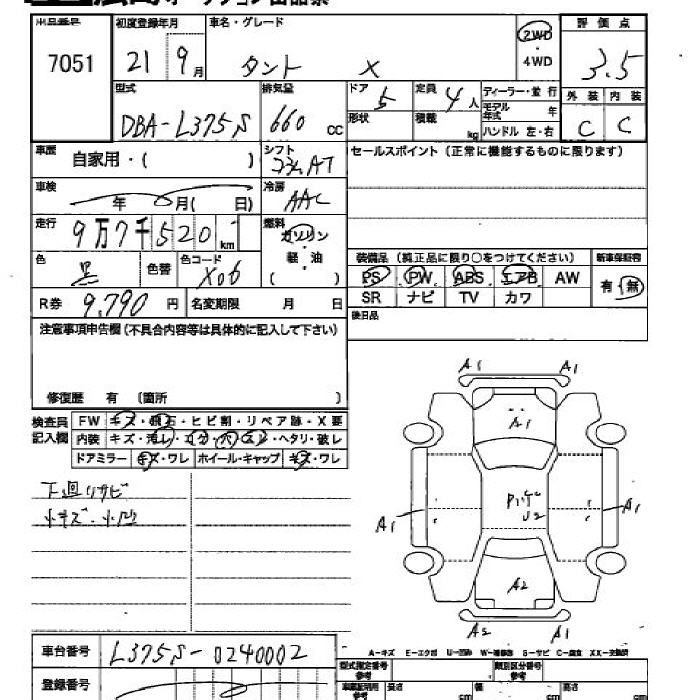 出品番号 7051
初度登録年月 21 9月
車名・グレード タント X
2WD・4WD
評価点 3.5
外装 C 内装 C
型式 DBA-L375S
排気量 660 cc
ドア 5 定員 4人
形状 積載 kg
ディーラー・並行
モデル年式 年
ハンドル 左・右
車歴 自家用・( )
シフト コラムAT
セールスポイント（正常に機能するものに限ります）
車検 年 月( 日)
冷房 AAC
走行 9万7千520km
燃料 ガソリン・軽油 ( )
色 黒 色替 色コード X06
装備品（純正品に限り○をつけてください） 新車保証書
PS PW ABS エアB AW 有・無
SR ナビ TV カワ
R券 9,790円 名変期限 月 日
後日品
注意事項申告欄（不具合内容等は具体的に記入して下さい）
修復歴 有 〔箇所 〕
検査員記入欄
FW キズ・飛石・ヒビ割・リペア跡・X要
内装 キズ・汚レ・コゲ・穴・スレ・ヘタリ・破レ
ドアミラー キズ・ワレ ホイール・キャップ キズ・ワレ
下廻りサビ
小キズ・小凹
A1 A1
A1
A1 A1
U2
A2
A2 A1
車台番号 L375S-0240002
A-キズ E-エクボ U-凹み W-補修跡 S-サビ C-腐食 XX-交換済
型式指定番号 参考 類別区分番号 参考
登録番号
長さ cm 幅 cm 高さ cm